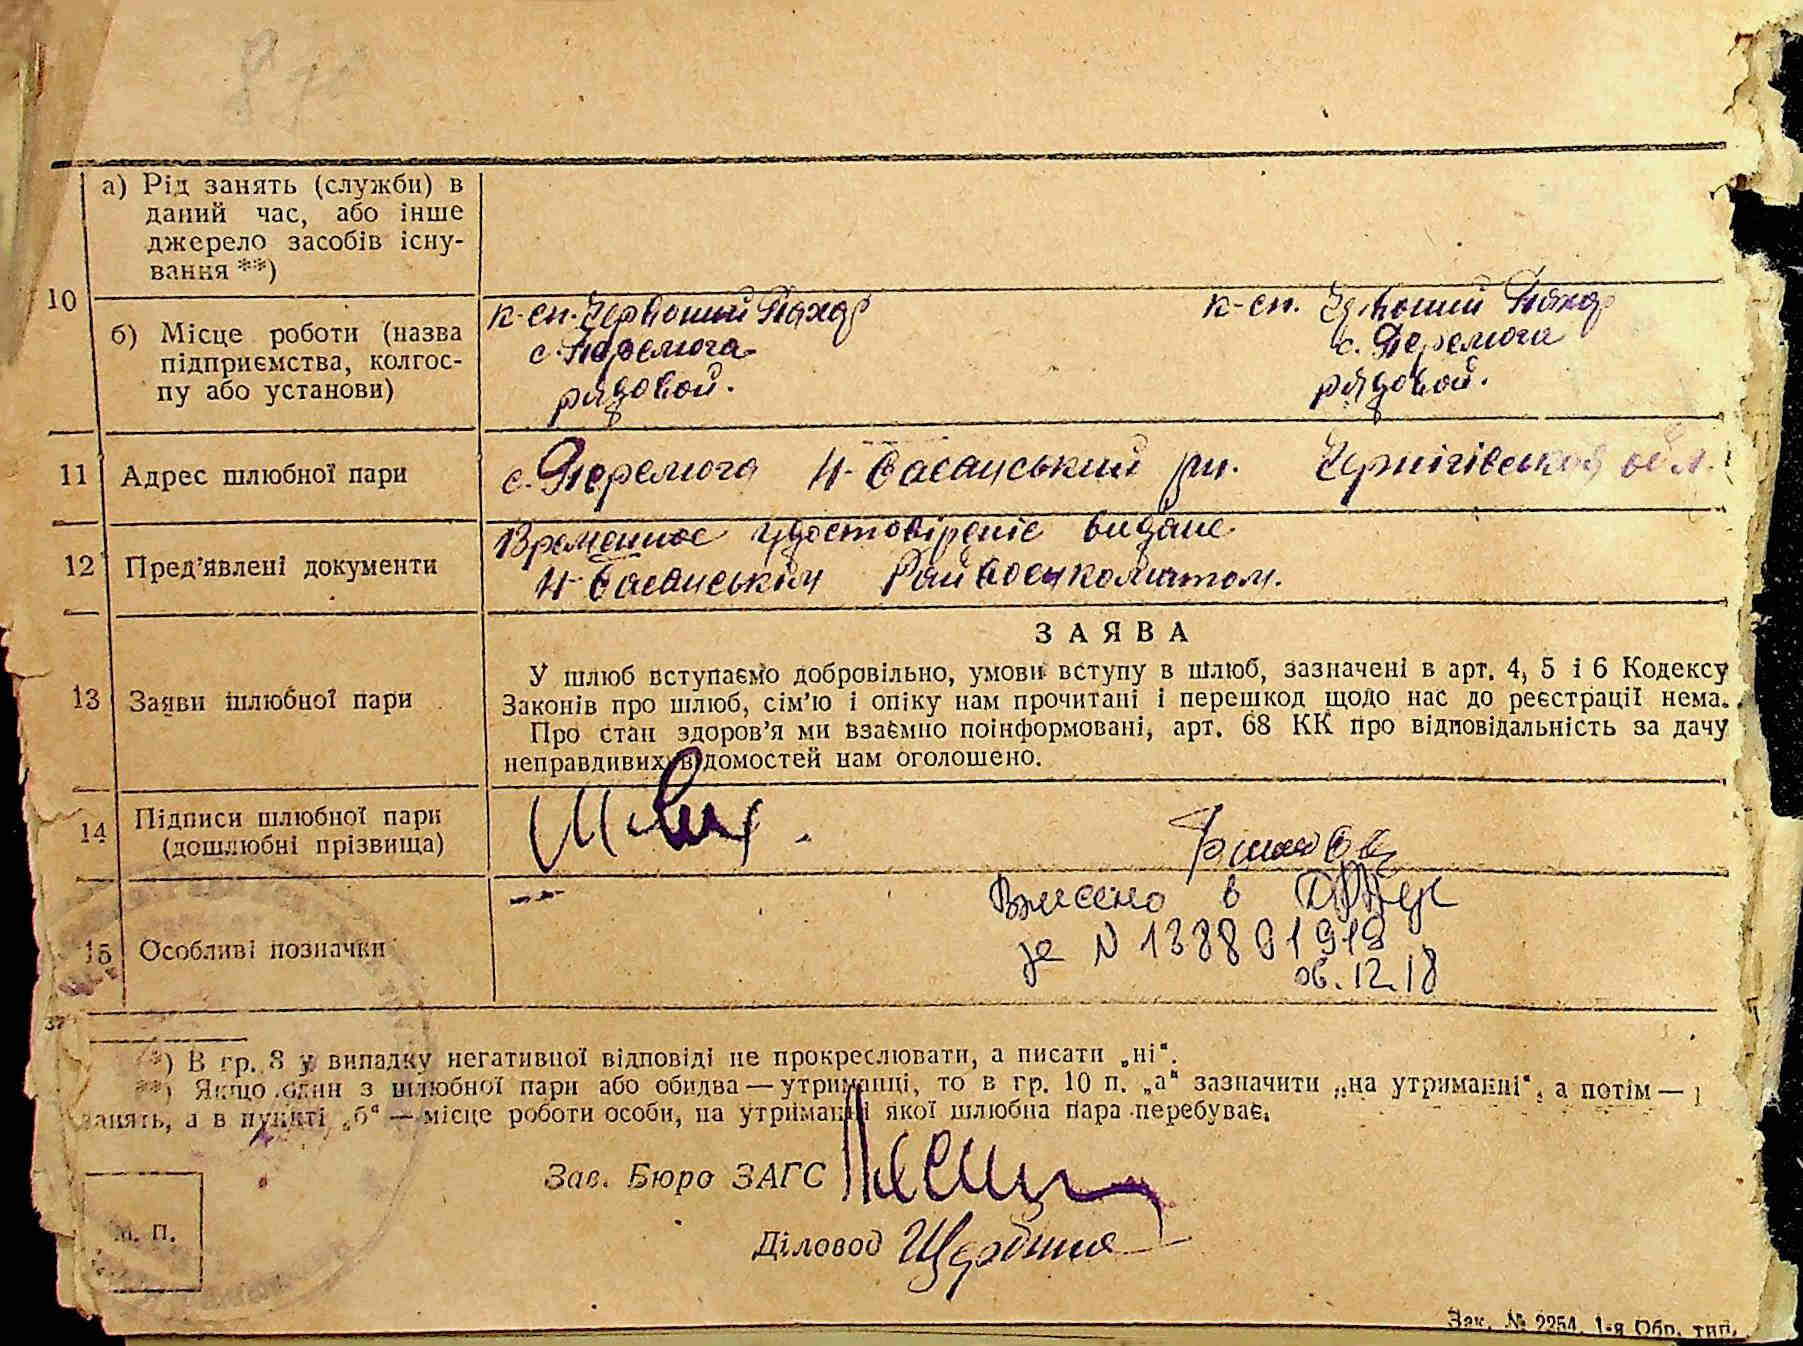 10
а) Рід занять (служби) в
даний час, або інше
джерело засобів існу-
вання **)
б) Місце роботи (назва
підприємства, колгос-
пу або установи)
к-сп. Червоний Пахар
с. Перемога
рядовой.
к-сп. Червоний Пахар
с. Перемога
рядовой.
11 Адрес шлюбної пари
с. Перемога Н-Басанський рн. Чернігівської обл.
12 Пред’явлені документи
Временное удостовіреніє видане
Н-Басанським Райвоенкоматом.
13 Заяви шлюбної пари
ЗАЯВА
У шлюб вступаємо добровільно, умови вступу в шлюб, зазначені в арт. 4, 5 і 6 Кодексу
Законів про шлюб, сім’ю і опіку нам прочитані і перешкод щодо нас до реєстрації нема.
Про стан здоров’я ми взаємно поінформовані, арт. 68 КК про відповідальність за дачу
неправдивих відомостей нам оголошено.
14 Підписи шлюбної пари
(дошлюбні прізвища)
15 Особливі позначки
Внесено в
за N 138891919
06.12.18
*) В гр. 8 у випадку негативної відповіді не прокреслювати, а писати „ні“.
**) Якщо один з шлюбної пари або обидва — утриманці, то в гр. 10 п. „а“ зазначити „на утриманні“, а потім —
занять, а в пункті „б“ — місце роботи особи, на утриманні якої шлюбна пара перебуває.
Зав. Бюро ЗАГС
Діловод Щербина
М. П.
Зак. № 2254. 1-я Обр. тип.